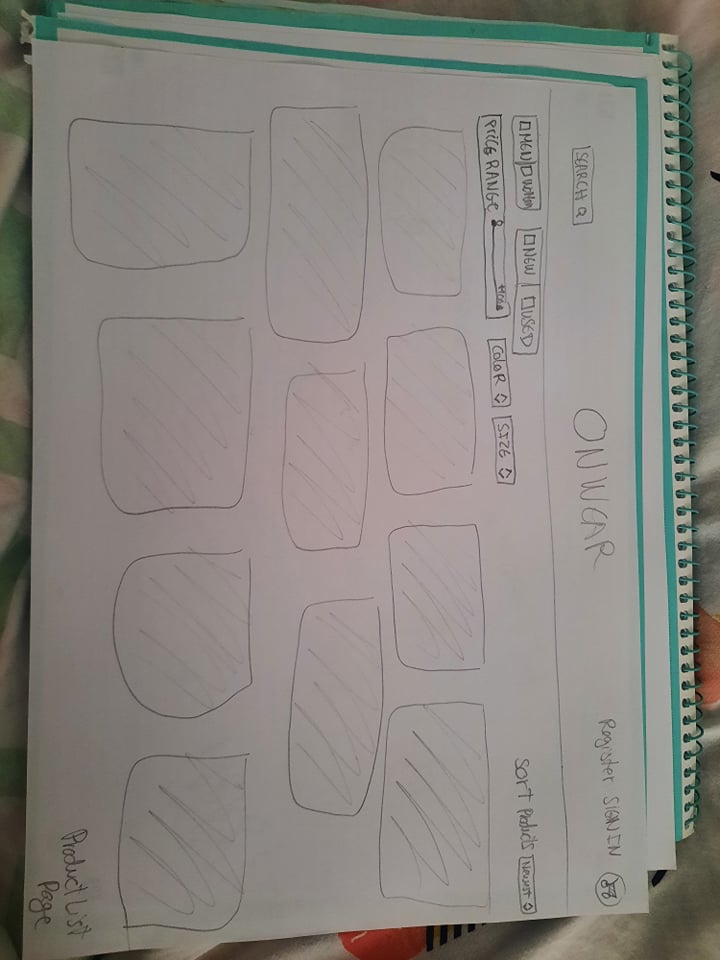 SEARCH
ONWEAR
Register SIGN IN
MEN WOMEN NEW USED
SORT Products Newest
PRICE RANGE COLOR SIZE
Product List
Page